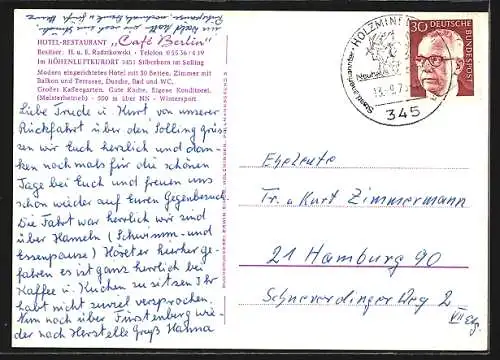 HOTEL-RESTAURANT „Café Berlin"
Besitzer: H. u. E. Radzikowski · Telefon 0 55 36 / 4 19
Im HÖHENLUFTKURORT 3451 Silberborn im Solling
Modern eingerichtetes Hotel mit 30 Betten. Zimmer mit
Balkon und Terrassen, Dusche, Bad und WC.
Großer Kaffeegarten. Gute Küche, Eigene Konditorei.
(Meisterbetrieb) - 500 m über NN - Wintersport.
Liebe Trude u Kurt, von unserer
Rückfahrt über den Solling grüs-
sen wir Euch herzlich und dan-
ken nochmals für die schönen
Tage bei Euch und freuen uns
schon wieder auf Euren Gegenbesuch.
Die Fahrt war herrlich wir sind
über Hameln (Schwimm- und
Essenpause) Höxter hierher ge-
fahren es ist ganz herrlich bei
Kaffee u. Kuchen zu sitzen Ihr
habt nicht zuviel versprochen.
Nun noch über Fürstenberg wie-
der nach Herstelle Gruß Hanna
HOLZMINDEN
345
30 DEUTSCHE
BUNDESPOST
Eheleute
Tr. u Kurt Zimmermann
21 Hamburg 90
Schneverdinger Weg 2
VII Etg.